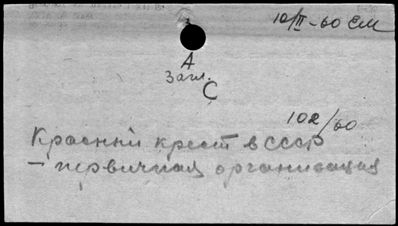 10/II-60 СМ
А
Загл.
С
102/60
Красный крест в СССР
- первичная организация